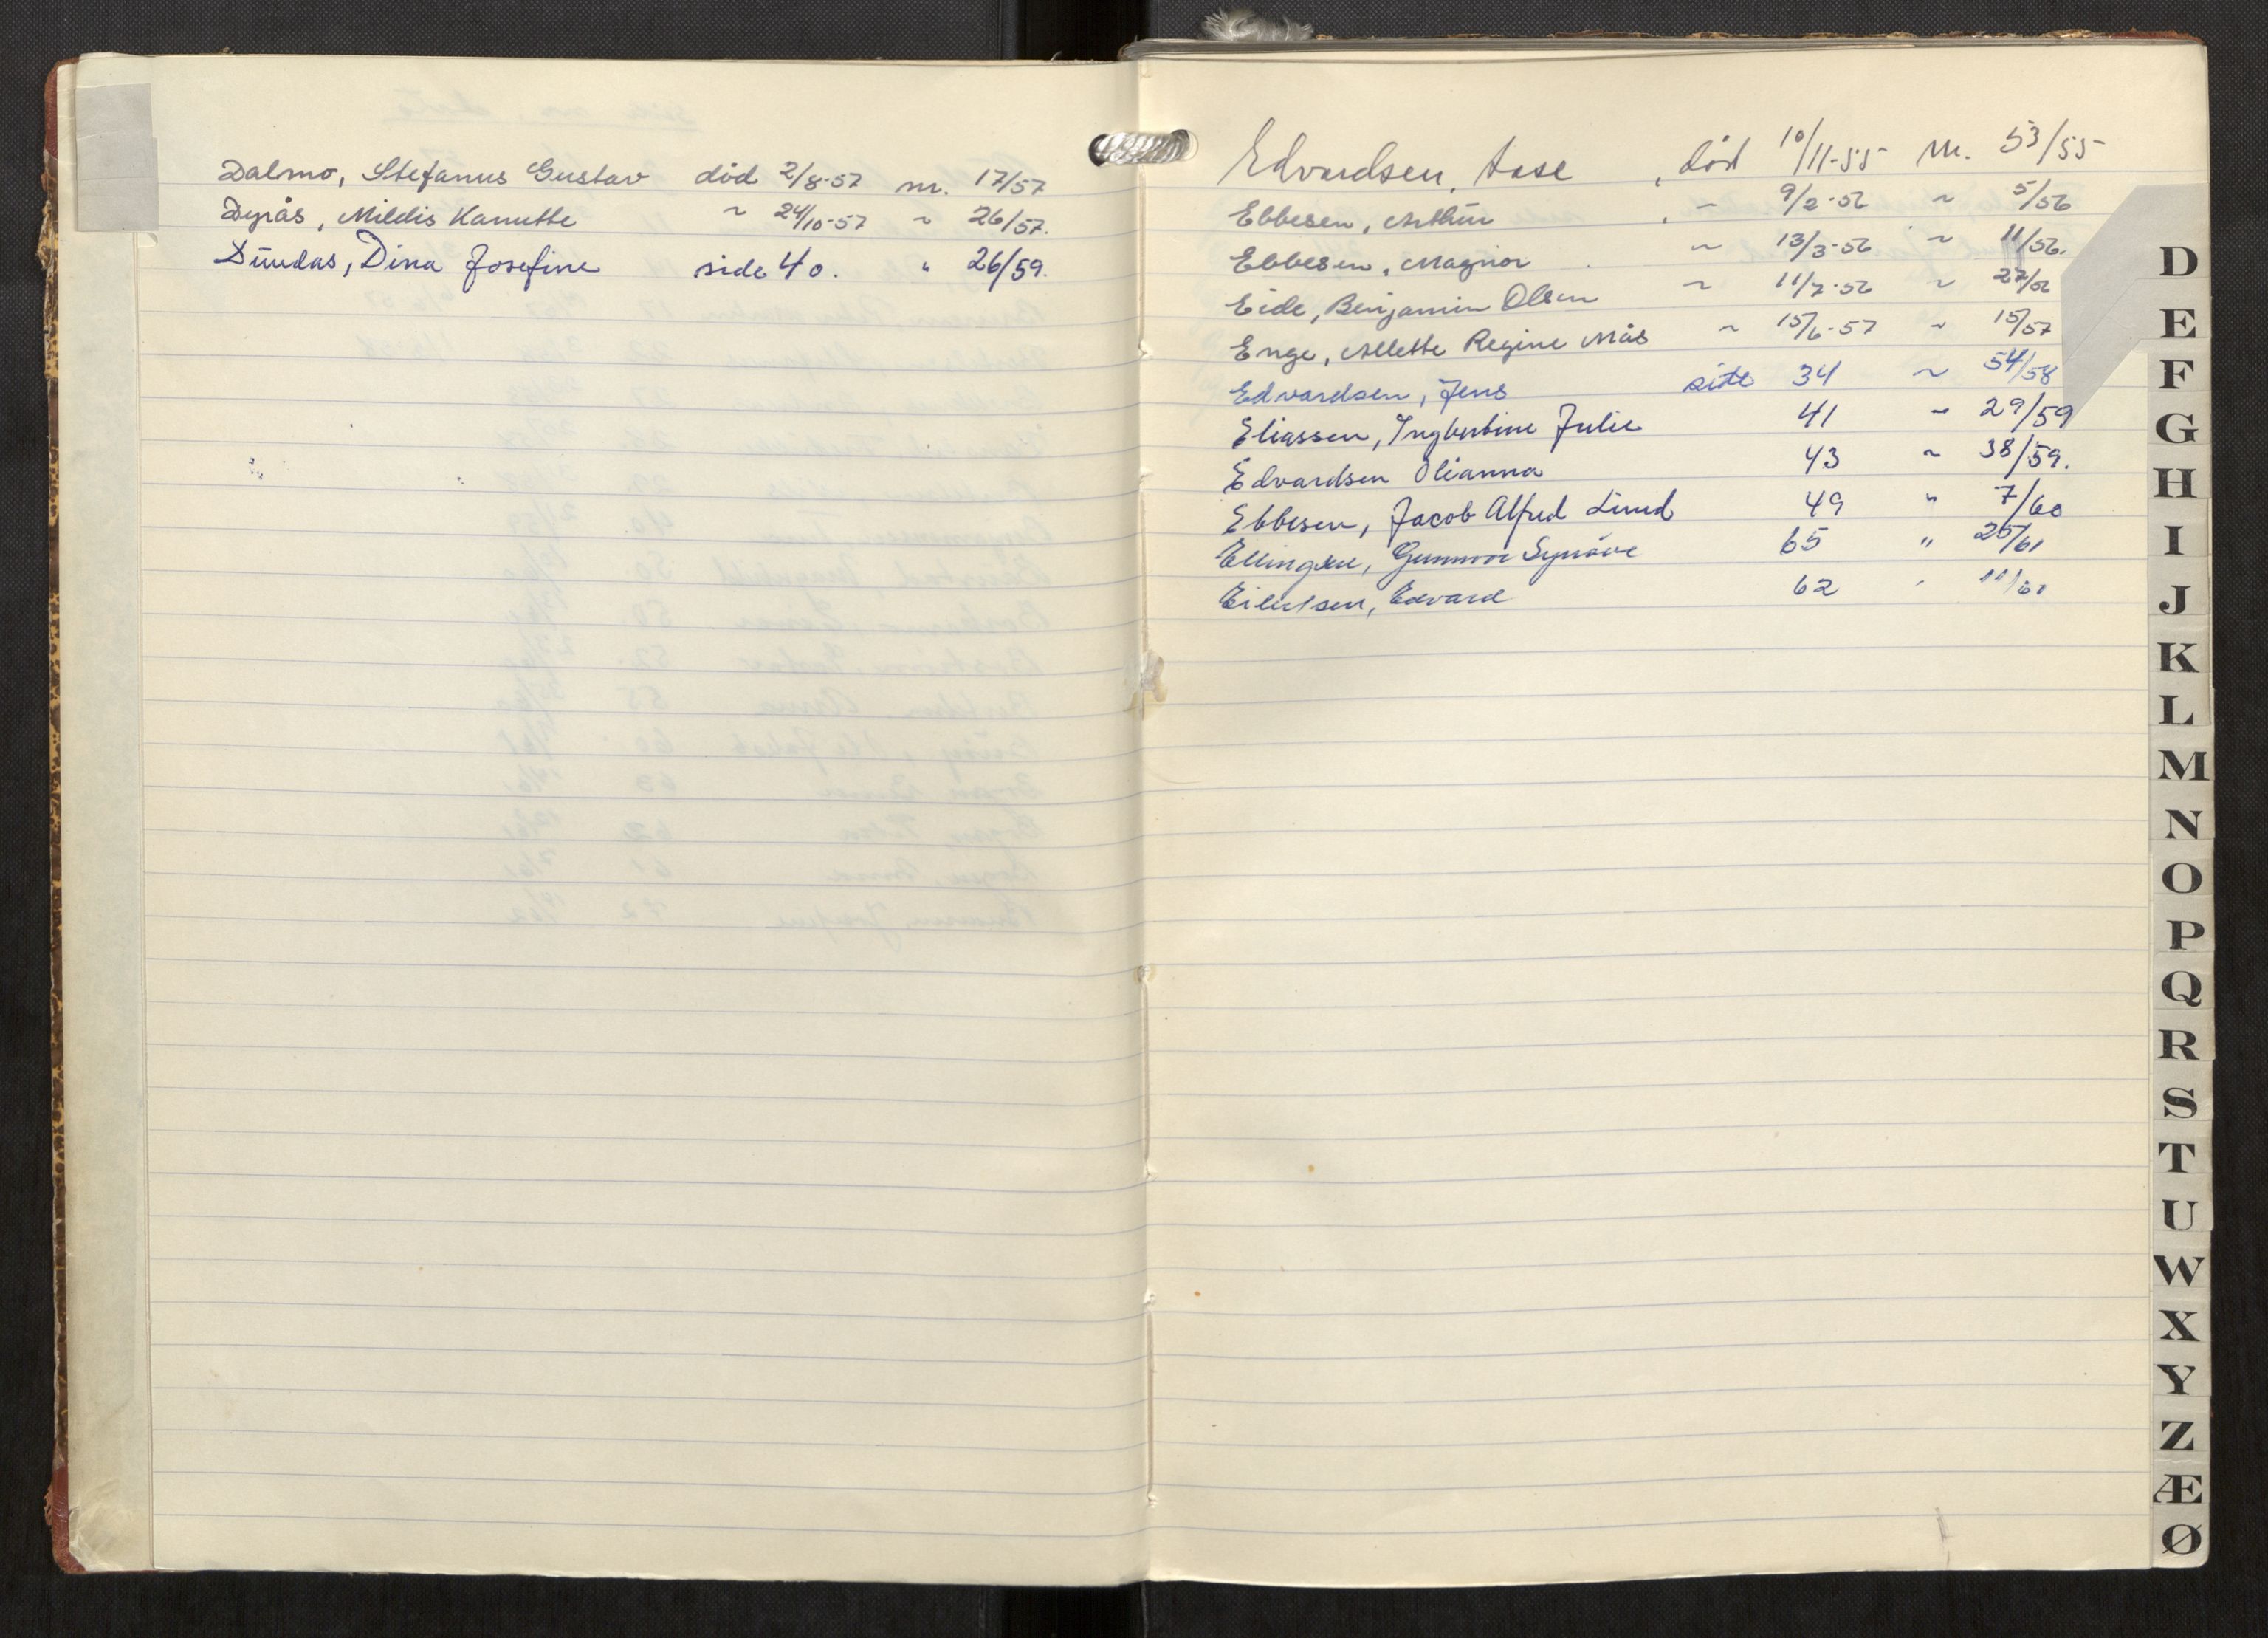 Dalmo, Stefanus Gustav død 2/8-57 nr. 17/57
Dyrås, Mildis Kanutte ~ 24/10-57 ~ 26/57.
Dundas, Dina Josefine side 40. " 26/59.
Edvardsen, Aase, død 10/11-55 nr. 53/55
Ebbesen, Arthur, ~ 9/2-56 ~ 5/56
Ebbesen, Magnor ~ 13/3-56 ~ 11/56.
Eide, Benjamin Olsen ~ 11/7-56 ~ 27/56
Enge, Allette Regine Mås ~ 15/6-57 ~ 15/57
Edvardsen, Jens side 34 ~ 54/58
Eliassen, Ingbertine Julie 41 ~ 29/59
Edvardsen Olianna 43 ~ 38/59.
Ebbesen, Jacob Alfred Lund 49 " 7/60
Ellingsen, Gunnvor Synøve 65 " 25/61
Eilertsen, Edvard 62 " 11/61
D
E
F
G
H
I
J
K
L
M
N
O
P
Q
R
S
T
U
W
X
Y
Z
Æ
Ø